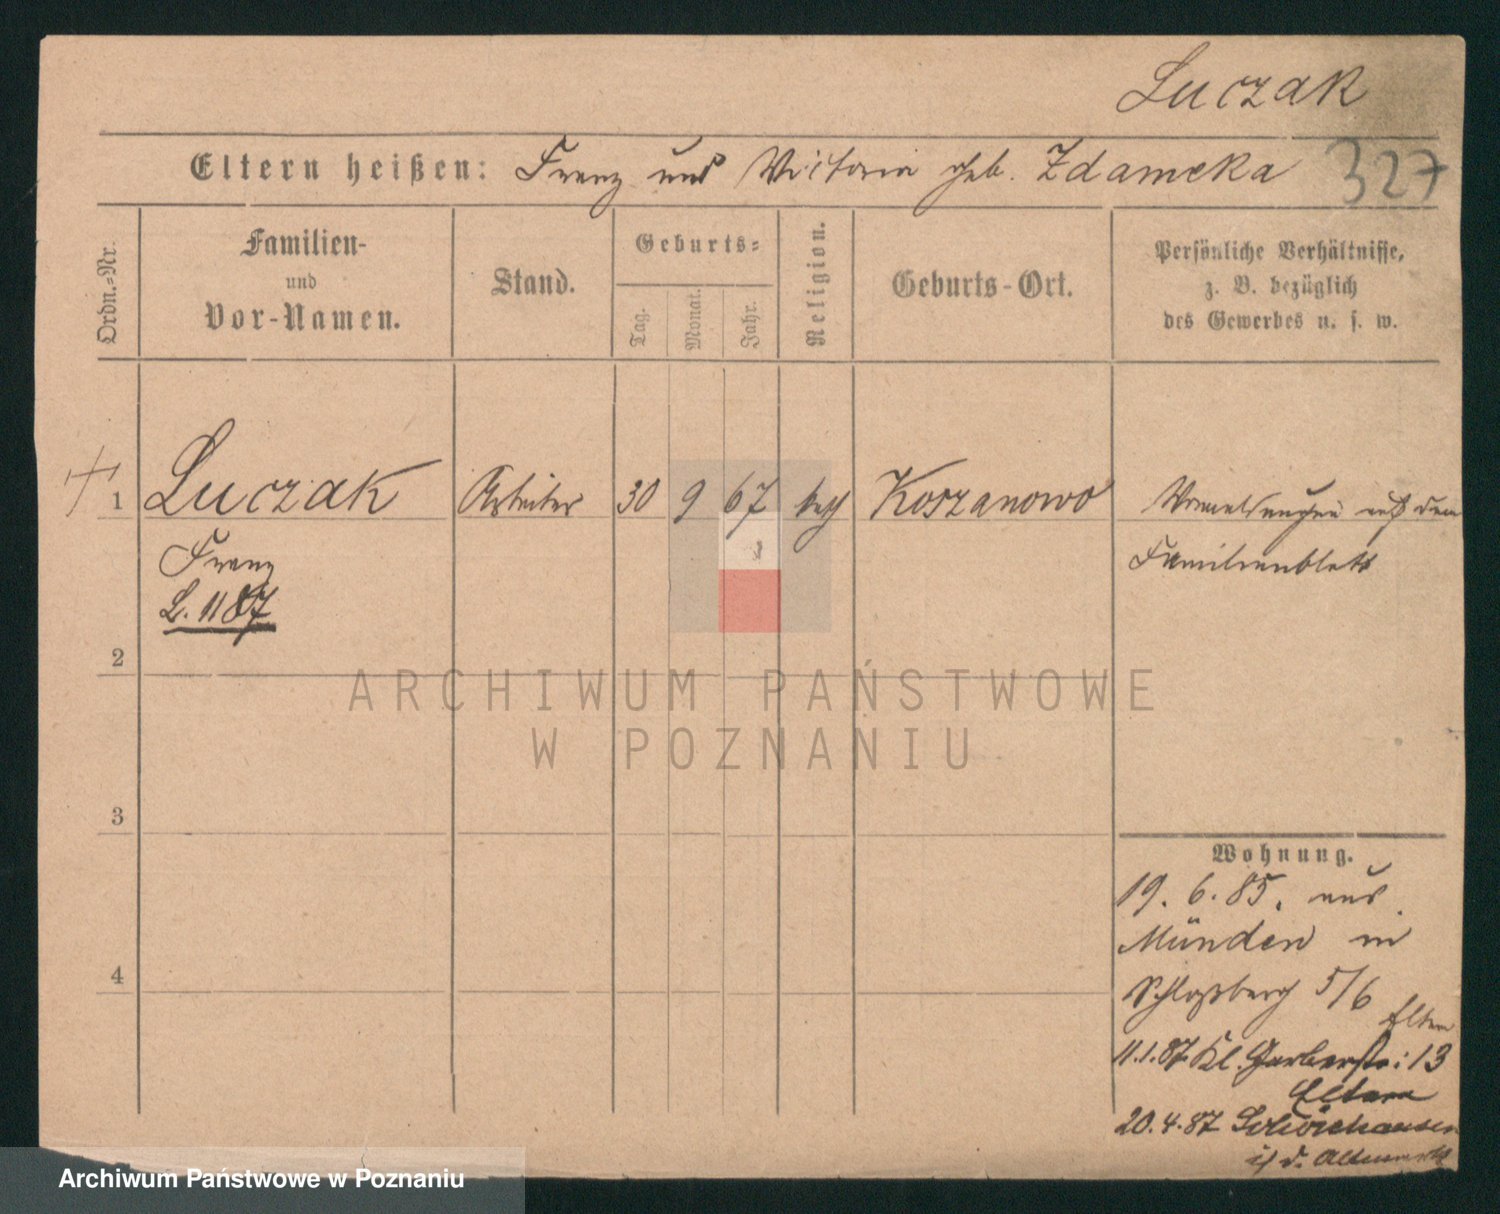 Luczak
Eltern heißen: Franz und Victoria geb. Zdamcka
327
Ordn.-Nr.
Familien-
und
Vor-Namen.
Stand.
Geburts-
Tag.
Monat.
Jahr.
Religion.
Geburts-Ort.
Persönliche Verhältnisse,
z. B. bezüglich
des Gewerbes u. s. w.
1 Luczak Arbeiter 30 9 67 kath Koszanowo auf dem
Franz Familienblatt
L. 1187
2
ARCHIWUM PAŃSTWOWE
W POZNANIU
3
Wohnung.
19. 6. 85. aus
Münden in
4
Schloßberg 5/6
Eltern
11.1.87 Kl. Gerberstr: 13
Eltern
20.4.87
i/ d.
Archiwum Państwowe w Poznaniu